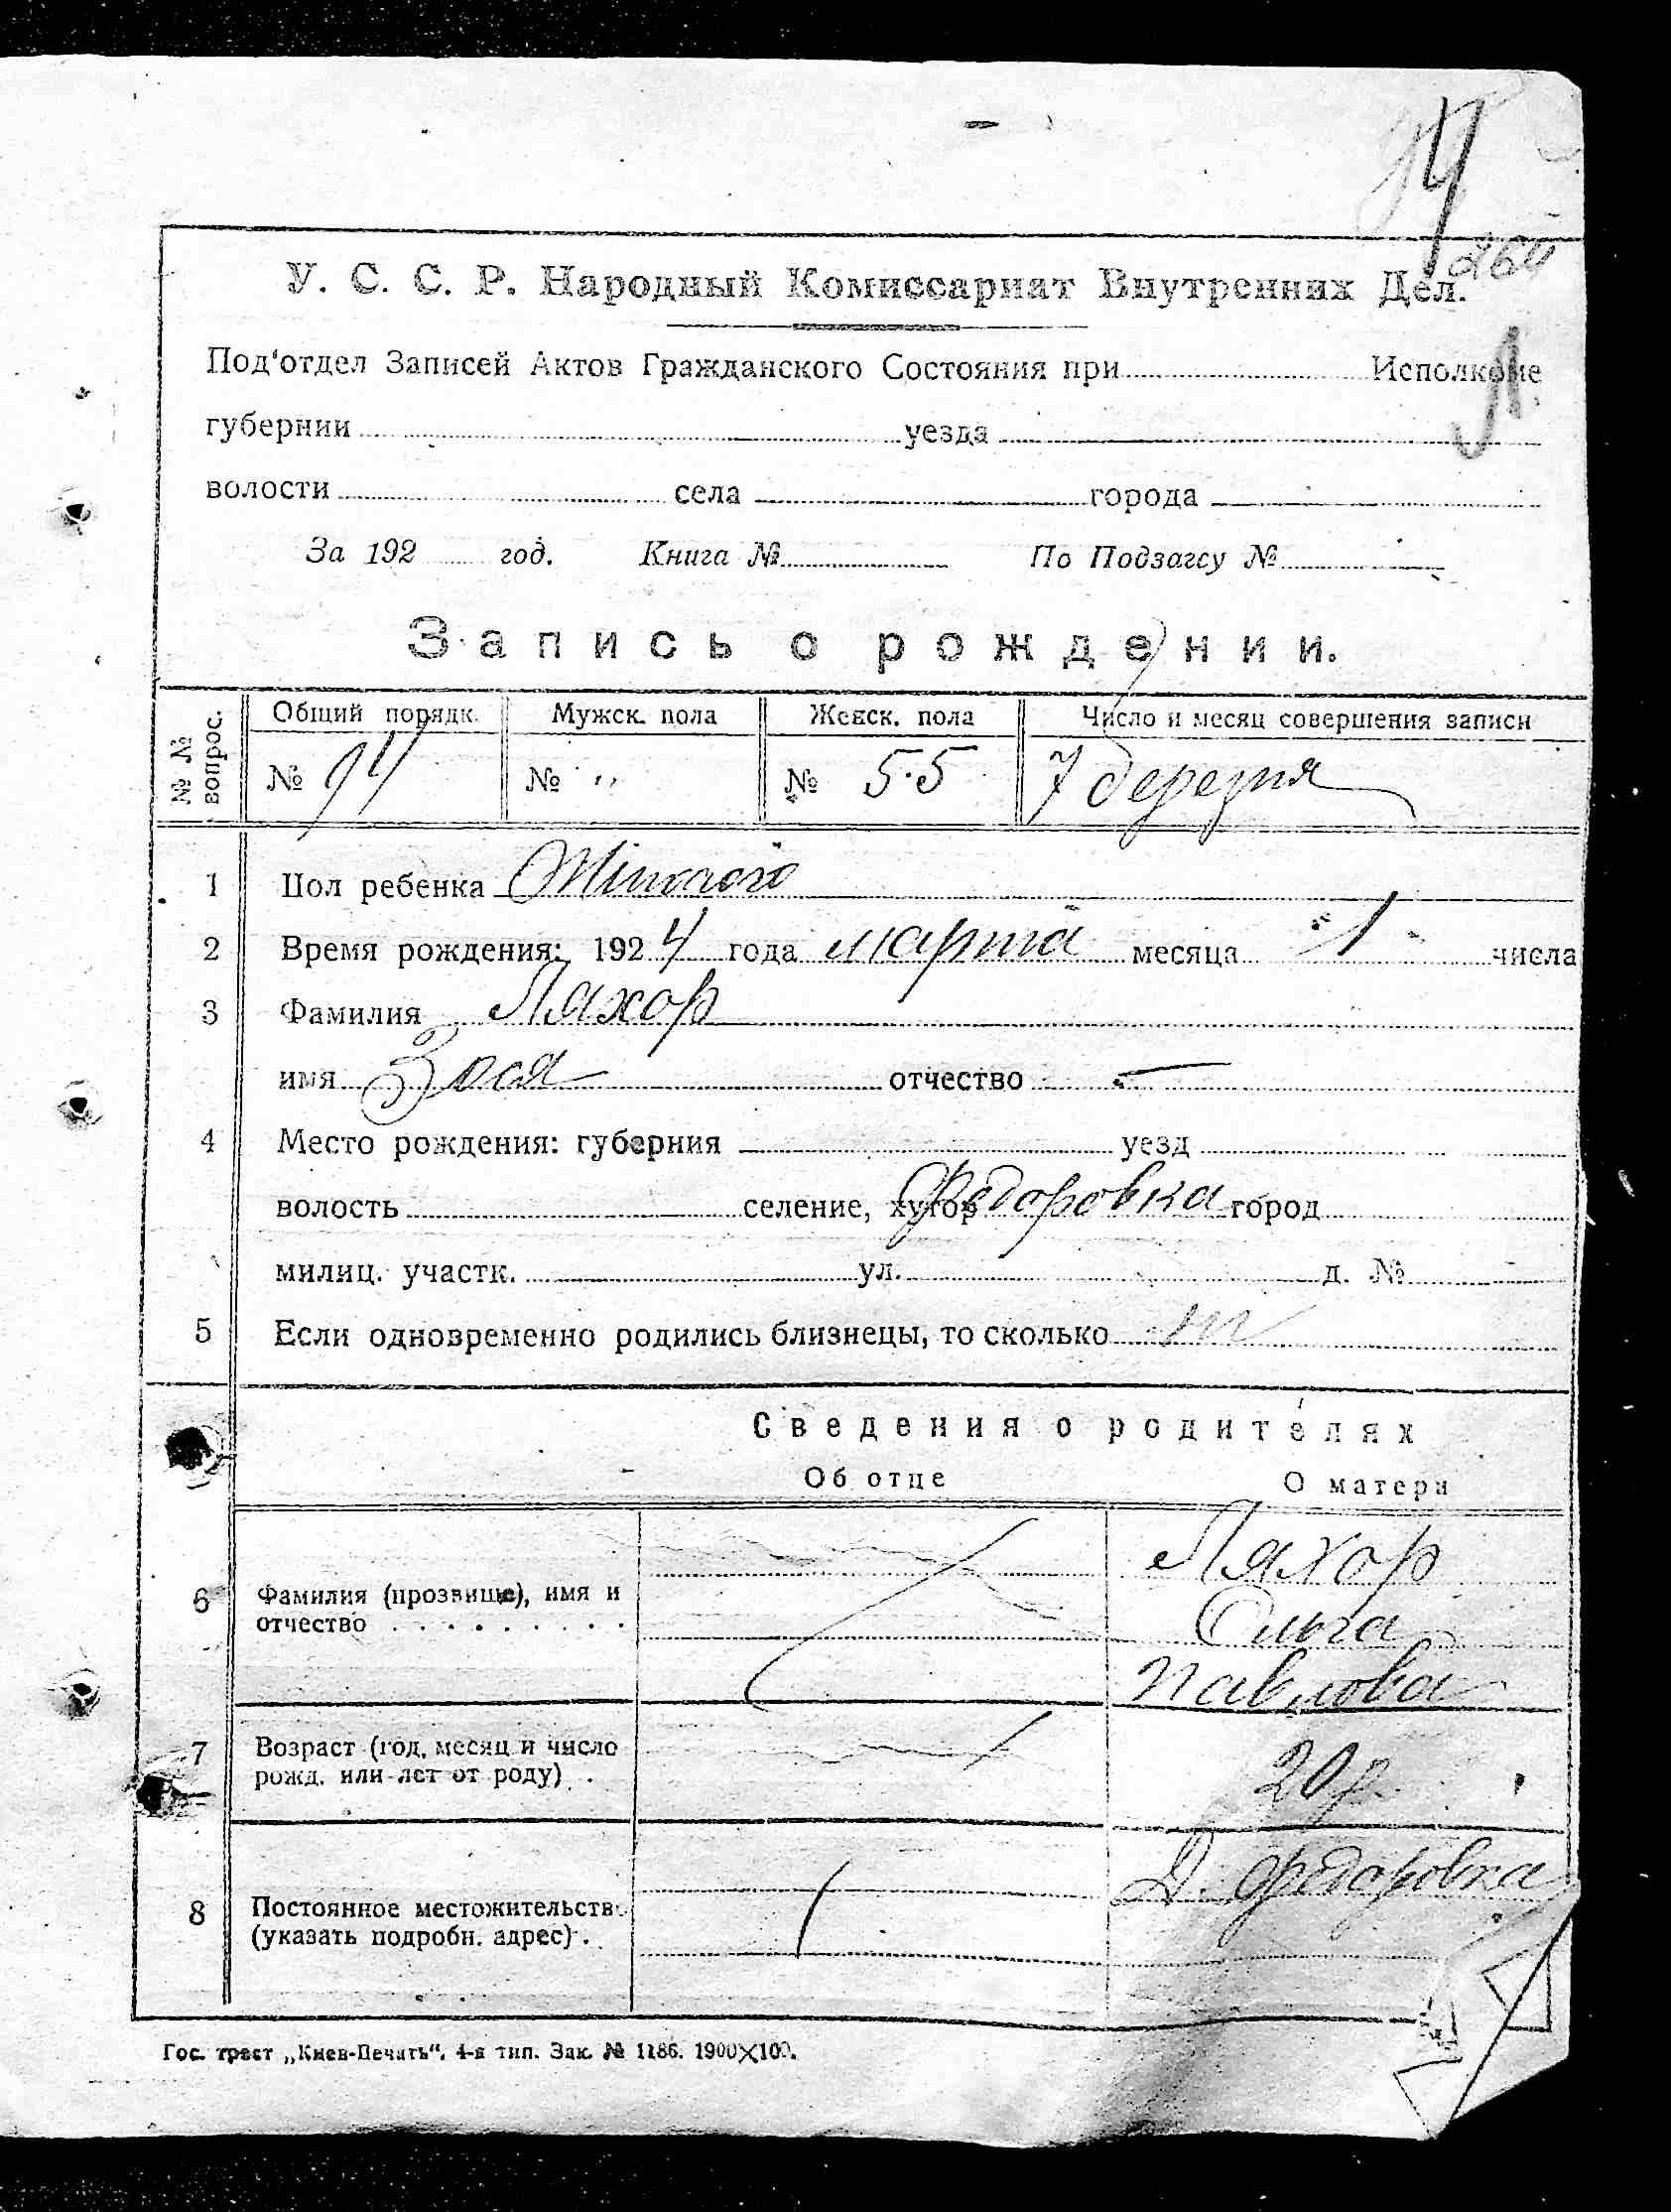 94
264
У. С. С. Р. Народный Комиссариат Внутренних Дел.
Л
Под'отдел Записей Актов Гражданского Состояния при Исполкоме
губернии уезда
волости села города
За 192 год. Книга № По Подзагсу №
Запись о рождении.
№ № вопрос. Общий порядк. Мужск. пола Женск. пола Число и месяц совершения записи
№ 94 № „ № 55 7 березня
1 Пол ребенка Жіночого
2 Время рождения: 1924 года марта месяца 1 числа
3 Фамилия Ляхор
имя Зося отчество —
4 Место рождения: губерния уезд
волость селение, хутор Федоровка город
милиц. участк. ул. д. №
5 Если одновременно родились близнецы, то сколько
Сведения о родителях
Об отце О матери
6 Фамилия (прозвище), имя и отчество Ляхор
Ольга
Павлова
7 Возраст (год, месяц и число рожд. или лет от роду) 20 р.
8 Постоянное местожительств (указать подробн. адрес) Д. Федоровка
Гос. трест „Киев-Печать“, 4-я тип. Зак. № 1186. 1900×100.